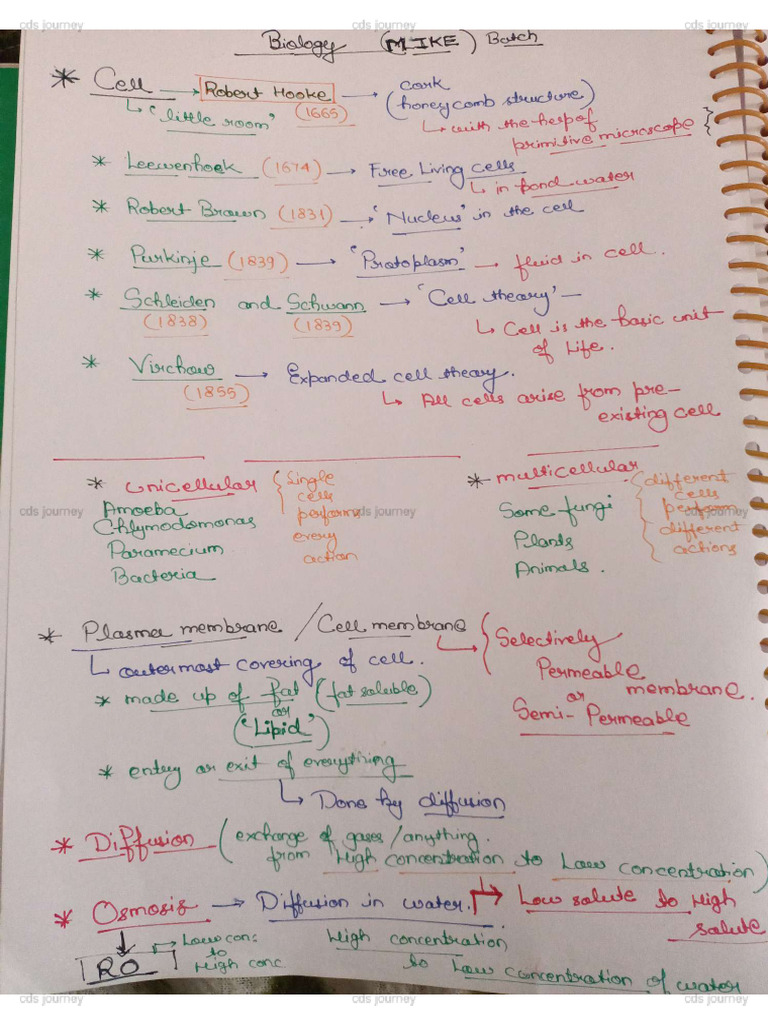 cds journey cds journey cds journey
Biology (MIKE) Batch
* Cell → Robert Hooke → cork
(honeycomb structure)
↳ 'little room' (1665) ↳ with the help of
primitive microscope
* Leewenhoek (1674) → Free Living cells
↳ in pond water
* Robert Brown (1831) → 'Nucleus' in the cell
* Purkinje (1839) → 'Protoplasm' → fluid in cell.
* Schleiden and Schwann → 'Cell theory' –
(1838) (1839) ↳ Cell is the basic unit
of Life.
* Virchow → Expanded cell theory.
(1855) ↳ All cells arise from pre-
existing cell
* Unicellular { Single
cells
performs
every
action
Amoeba
Chlymodomonas
Paramecium
Bacteria
* multicellular { different
cells
perform
different
actions
Some fungi
Plants
Animals.
cds journey cds journey cds journey
* Plasma membrane / Cell membrane
↳ outermost covering of cell.
→ { Selectively
Permeable
membrane.
or
Semi-Permeable
* made up of fat (fat soluble)
or
('Lipid')
* entry or exit of everything
↳ Done by diffusion
* Diffusion (exchange of gases/anything.
from High concentration to Low concentration)
* Osmosis → Diffusion in water. → Low solute to High
solute
↓
RO → Low con:
to
High conc
High concentration
to Low concentration of water
cds journey cds journey cds journey